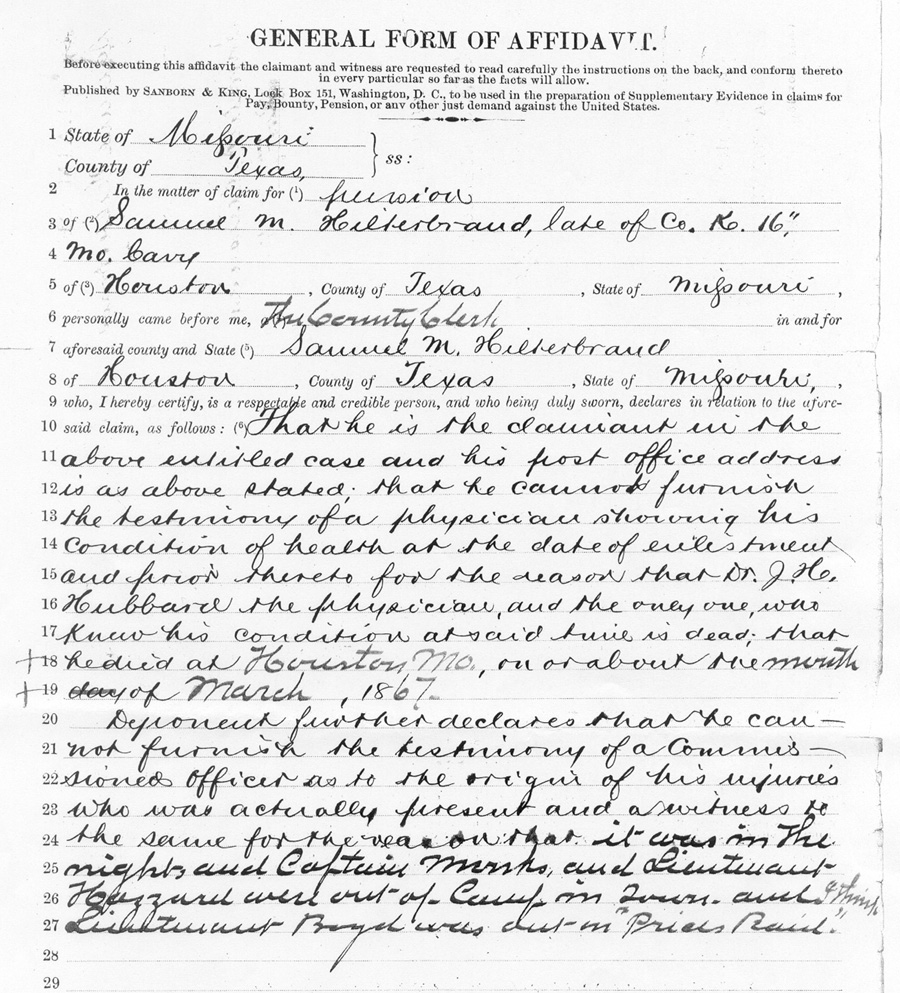 GENERAL FORM OF AFFIDAVIT.
Before executing this affidavit the claimant and witness are requested to read carefully the instructions on the back, and conform thereto
in every particular so far as the facts will allow.
Published by SANBORN & KING, Lock Box 151, Washington, D. C., to be used in the preparation of Supplementary Evidence in claims for
Pay, Bounty, Pension, or any other just demand against the United States.
1 State of Missouri
County of Texas, } ss:
2 In the matter of claim for (1) pension
3 of (2) Samuel M. Hilterbrand, late of Co. K. 16"
4 Mo. Cavy
5 of (3) Houston, County of Texas, State of Missouri,
6 personally came before me, The County Clerk in and for
7 aforesaid county and State (5) Samuel M. Hilterbrand
8 of Houston, County of Texas, State of Missouri,,
9 who, I hereby certify, is a respectable and credible person, and who being duly sworn, declares in relation to the afore-
10 said claim, as follows: (6) That he is the claimant in the
11 above entitled case and his post office address
12 is as above stated; that he cannot furnish
13 the testimony of a physician showing his
14 condition of health at the date of enlistment
15 and prior thereto for the reason that Dr. J. H.
16 Hubbard the physician, and the only one, who
17 knew his condition at said time is dead; that
+ 18 he died at Houston, Mo., on or about the month
+ 19 day of March, 1867.
20 Deponent further declares that he can-
21 not furnish the testimony of a Commis-
22 sioned Officer as to the origin of his injuries
23 who was actually present and a witness to
24 the same for the reason that it was in the
25 night and Captain Monks, and Lieutenant
26 Hazzard were out of Camp in Town. and I think
27 Lieutenant Boyd was out in "Prices Raid."
28
29